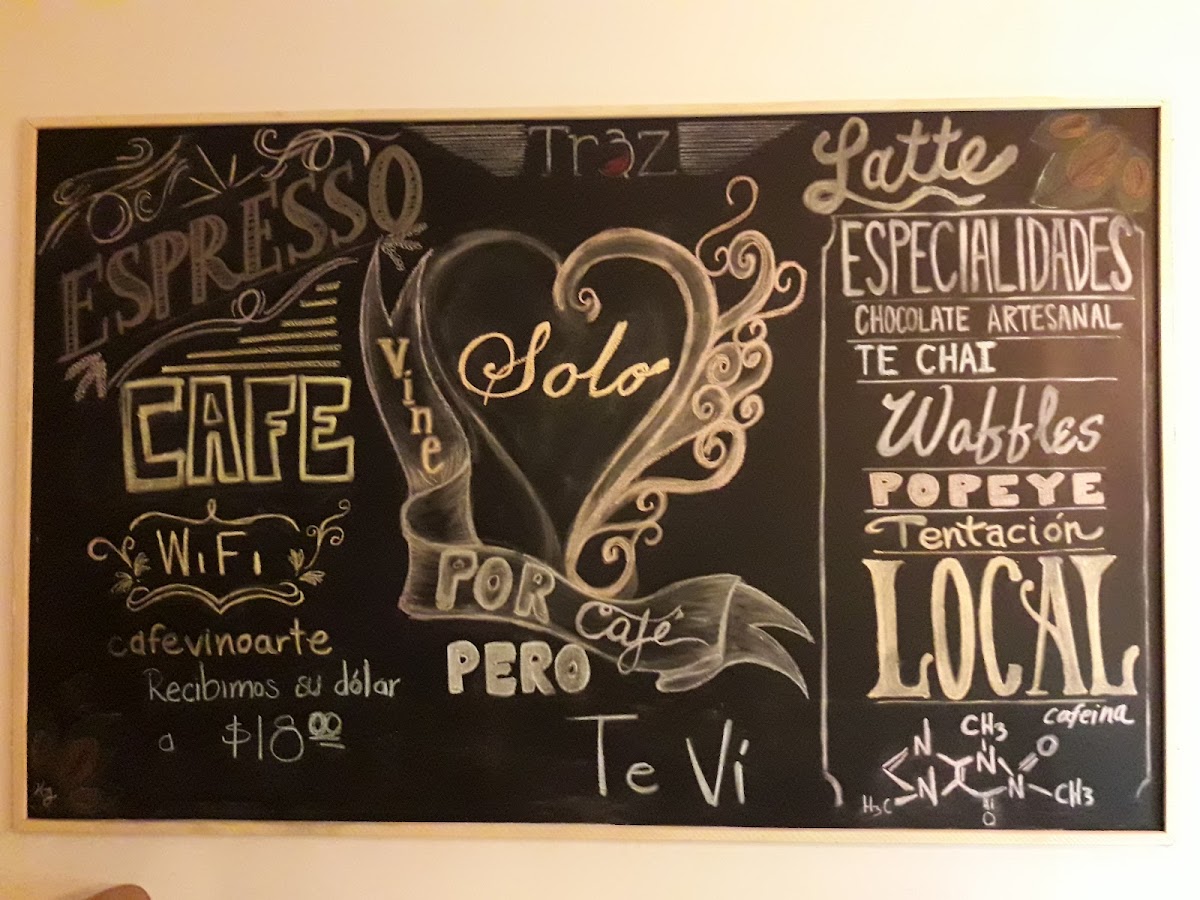 Traz
ESPRESSO
CAFE
WiFi
cafevinoarte
Recibimos su dólar
a $18.00
Solo
Vine
POR Café
PERO
Te Vi
Latte
ESPECIALIDADES
CHOCOLATE ARTESANAL
TE CHAI
Waffles
POPEYE
Tentación
LOCAL
cafeina
CH3
N
N
O
N
N
CH3
H3C
O